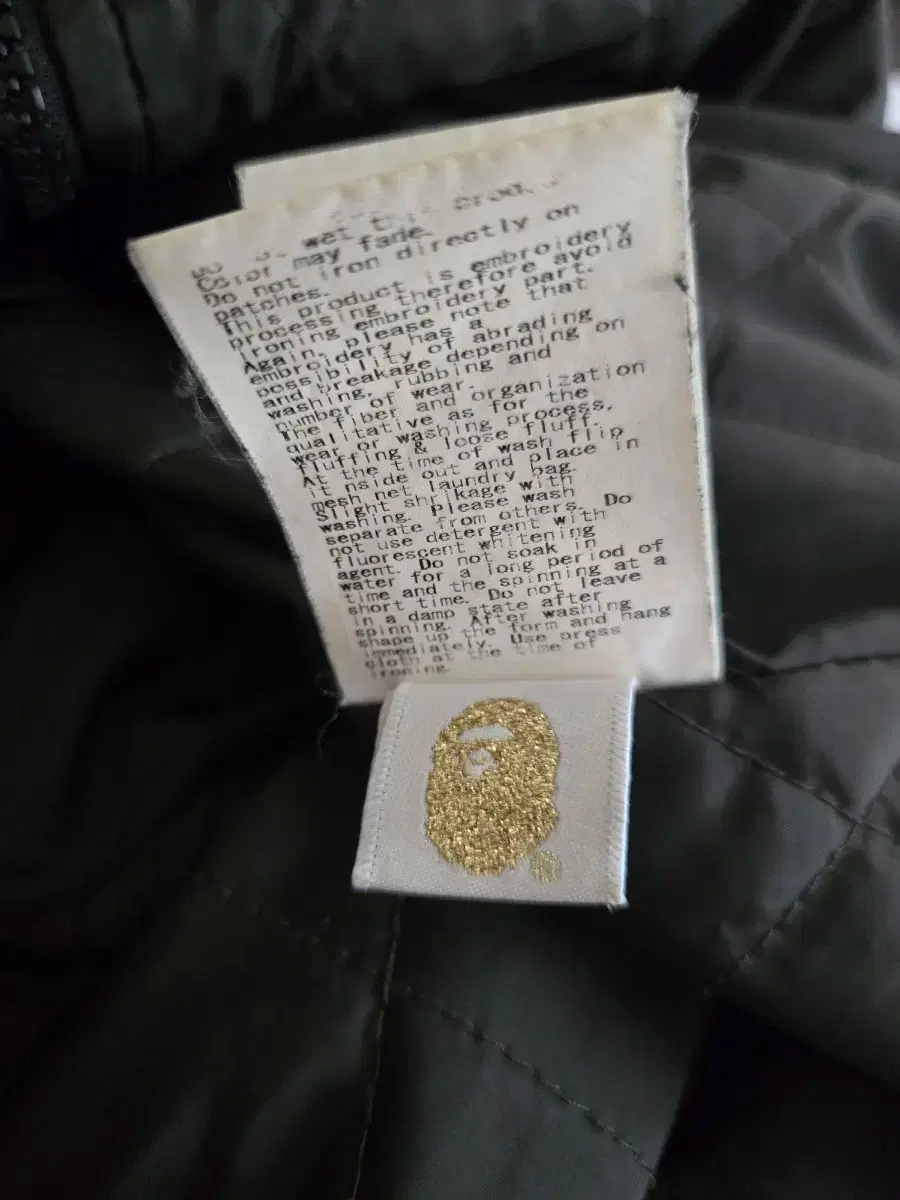 wet
Color may fade.
Do not iron directly on
patches.
This product is embroidery
processing therefore avoid
ironing embroidery part.
Again, please note that
embroidery has a
possibility of abrading
and breakage depending on
washing, rubbing and
number of wear.
The fiber and organization
qualitative as for the
wear or washing process,
fluffing & loose fluff.
At the time of wash flip
it nside out and place in
mesh net laundry bag.
Slight shrikage with
washing. Please wash
separate from others. Do
not use detergent with
fluorescent whitening
agent. Do not soak in
water for a long period of
time and the spinning at a
short time. Do not leave
in a damp state after
spinning. After washing
shape up the form and hang
immediately. Use press
cloth at the time of
ironing.